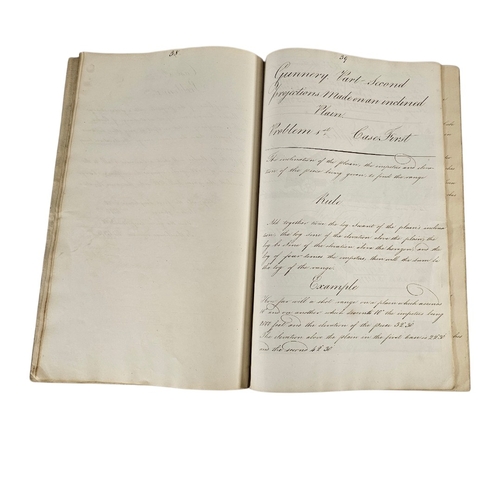 38
39
Gunnery Part Second
Projections Made on an inclined
Plain
Problem 1st. Case First
The inclination of the plain, the impetus and eleva
tion of the piece being given, to find the range
Rule
Add together twice the log Secant of the plains inclina
tion the log Sine of the elevation above the plain, the
log Co Sine of the elevation above the horizon, and the
log of four times the impetus, their will the sum be
the log of the range.
Example
How far will a shot range on a plain which ascends
and on another which descends the impetus being
feet and the elevation of the piece 32°30'
The elevation above the plain in the first case is
and the second